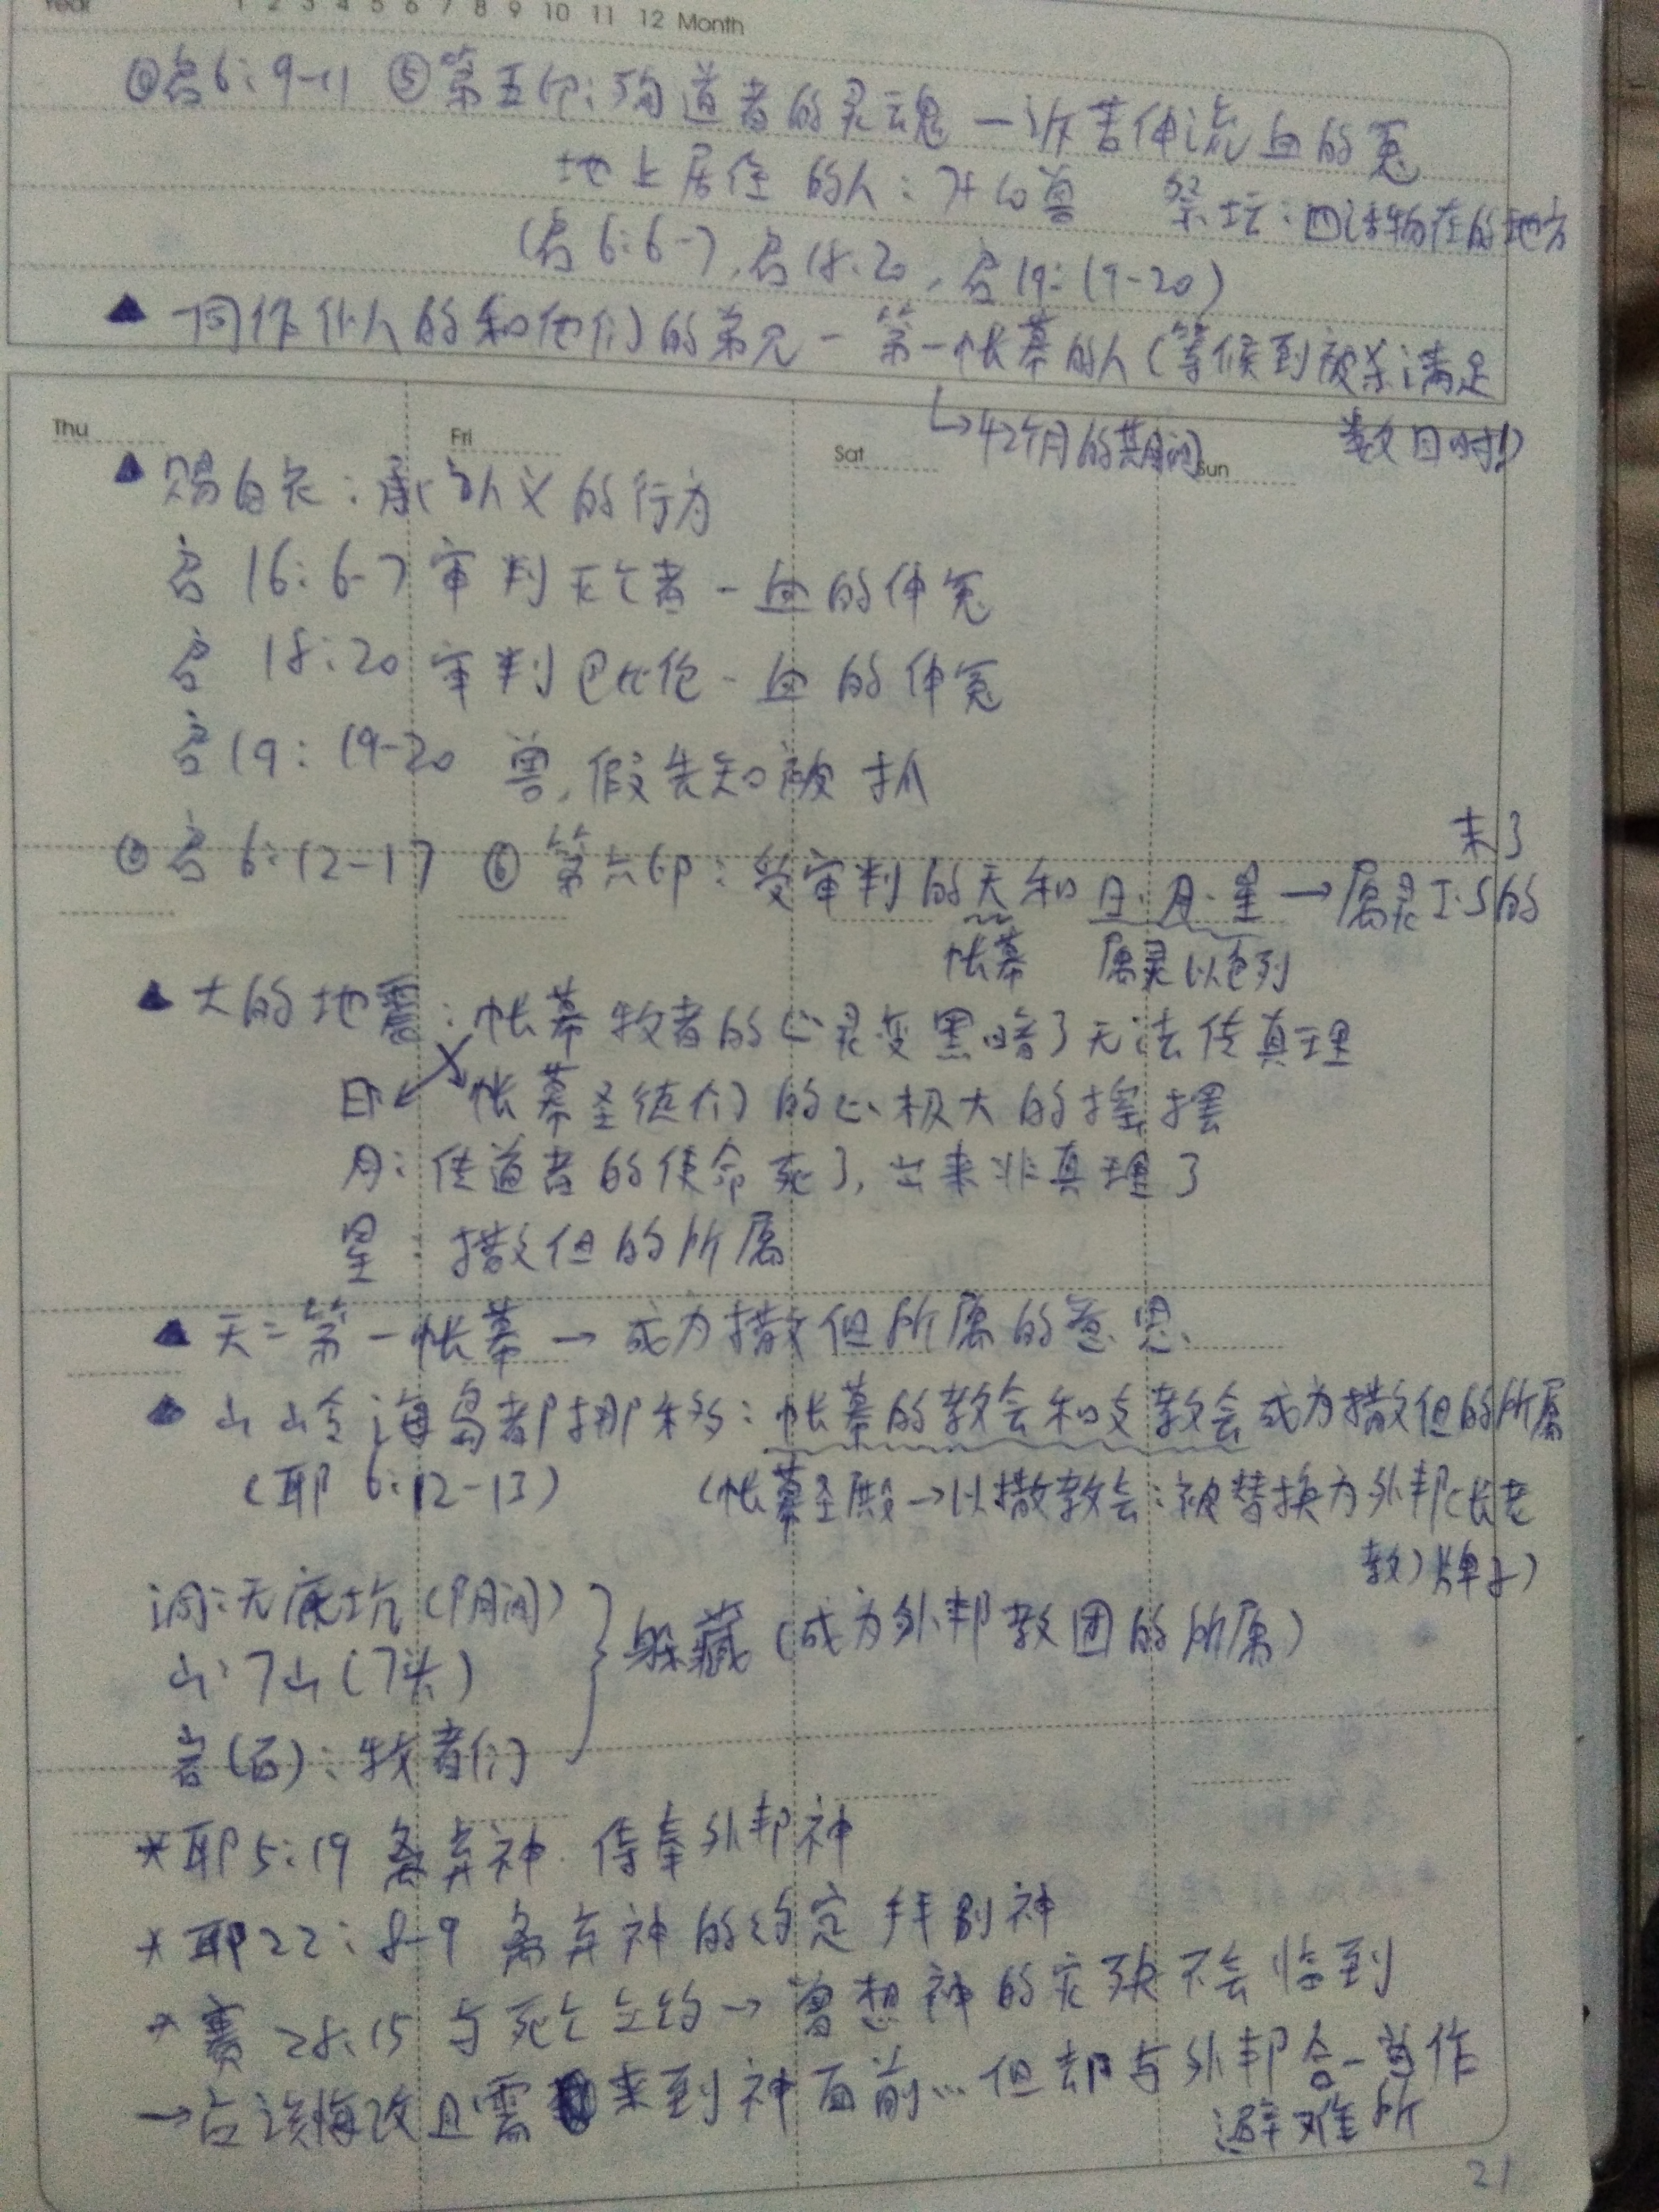 Year 1 2 3 4 5 6 7 8 9 10 11 12 Month
④启6:9-11 ⑤第五印:殉道者的灵魂一诉苦伸流血的冤
地上居住的人:7头10兽 祭坛:四活物在的地方
(启6:6-7,启18:20,启19:19-20)
▲同作仆人的和他们的弟兄-第一帐幕的人(等候到被杀满足
数目时)
↳42个月的期间
Thu Fri Sat Sun
▲赐白衣:承认义的行为
启16:6-7审判灭亡者-血的伸冤
启18:20审判巴比伦-血的伸冤
启19:19-20 兽,假先知被抓
末了
⑤启6:12-17 ⑥第六印:受审判的天和日·月·星→属灵I·S的
帐幕 属灵以色列
▲大的地震:帐幕牧者的心灵变黑暗了无法传真理
日 帐幕圣徒们的心极大的摇摆
月:传道者的使命死了,出来非真理了
星:撒但的所属
▲天=第一帐幕→成为撒但所属的意思.
▲山岭海岛都挪移:帐幕的教会和支教会成为撒但的所属
(耶6:12-13) (帐幕圣殿→以撒教会:被替换为外邦(长老
教)牌子)
洞:无底坑(阴间)
山:7山(7头) 躲藏(成为外邦教团的所属)
岩(石):牧者们
*耶5:19 离弃神.侍奉外邦神
*耶22:8-9 离弃神的约定拜别神
*赛28:15与死亡立约→曾想神的灾殃不会临到
→应该悔改且需来到神面前...但却与外邦合一当作
避难所
21